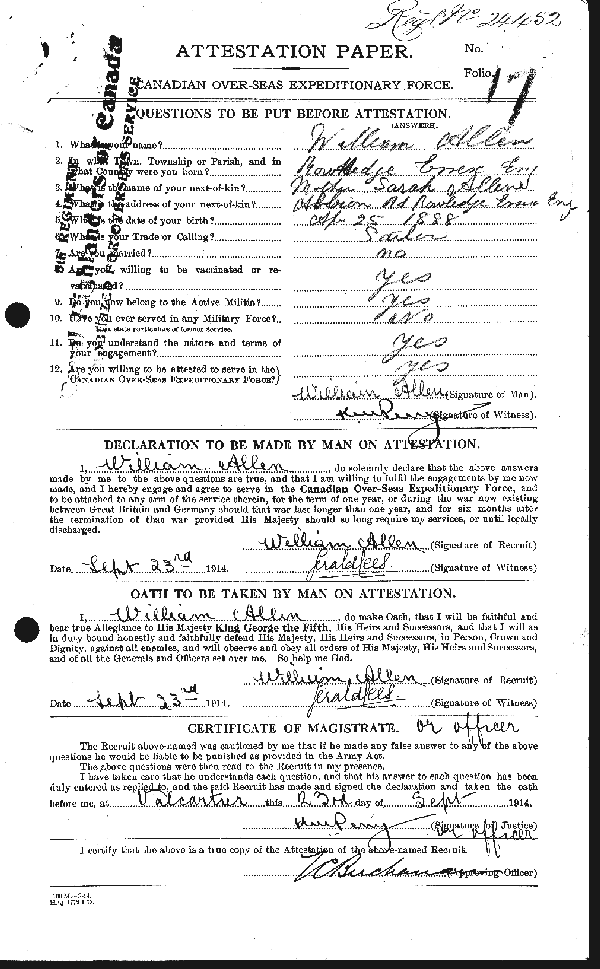 Reg. No 24452
ATTESTATION PAPER.
No.
Folio.
CANADIAN OVER-SEAS EXPEDITIONARY FORCE.
QUESTIONS TO BE PUT BEFORE ATTESTATION.
(ANSWERS.)
1. What is your name? William Allen
2. In what Town, Township or Parish, and in
what Country were you born? Rowhedge Essex Eng
3. What is the name of your next-of-kin? Mother Sarah Allen
4. What is the address of your next-of-kin? Albion Rd Rowhedge Essex Eng
5. What is the date of your birth? Apr 25 1888
6. What is your Trade or Calling? Sailor
7. Are you married? no
8. Are you willing to be vaccinated or re-
vaccinated? yes
9. Do you now belong to the Active Militia? yes
10. Have you ever served in any Military Force? No
If so, state particulars of former Service.
11. Do you understand the nature and terms of
your engagement? yes
12. Are you willing to be attested to serve in the
CANADIAN OVER-SEAS EXPEDITIONARY FORCE? yes
William Allen (Signature of Man).
(Signature of Witness).
DECLARATION TO BE MADE BY MAN ON ATTESTATION.
I, William Allen, do solemnly declare that the above answers
made by me to the above questions are true, and that I am willing to fulfil the engagements by me now
made, and I hereby engage and agree to serve in the Canadian Over-Seas Expeditionary Force, and
to be attached to any arm of the service therein, for the term of one year, or during the war now existing
between Great Britain and Germany should that war last longer than one year, and for six months after
the termination of that war provided His Majesty should so long require my services, or until legally
discharged.
William Allen (Signature of Recruit)
Date Sept 23rd 1914. (Signature of Witness)
OATH TO BE TAKEN BY MAN ON ATTESTATION.
I, William Allen, do make Oath, that I will be faithful and
bear true Allegiance to His Majesty King George the Fifth, His Heirs and Successors, and that I will as
in duty bound honestly and faithfully defend His Majesty, His Heirs and Successors, in Person, Crown and
Dignity, against all enemies, and will observe and obey all orders of His Majesty, His Heirs and Successors,
and of all the Generals and Officers set over me. So help me God.
William Allen (Signature of Recruit)
Date Sept 23rd 1914. (Signature of Witness)
CERTIFICATE OF MAGISTRATE. or officer
The Recruit above-named was cautioned by me that if he made any false answer to any of the above
questions he would be liable to be punished as provided in the Army Act.
The above questions were then read to the Recruit in my presence.
I have taken care that he understands each question, and that his answer to each question has been
duly entered as replied to, and the said Recruit has made and signed the declaration and taken the oath
before me, at Valcartier this 23rd day of Sept 1914.
(Signature of Justice)
or officer
I certify that the above is a true copy of the Attestation of the above-named Recruit.
(Approving Officer)